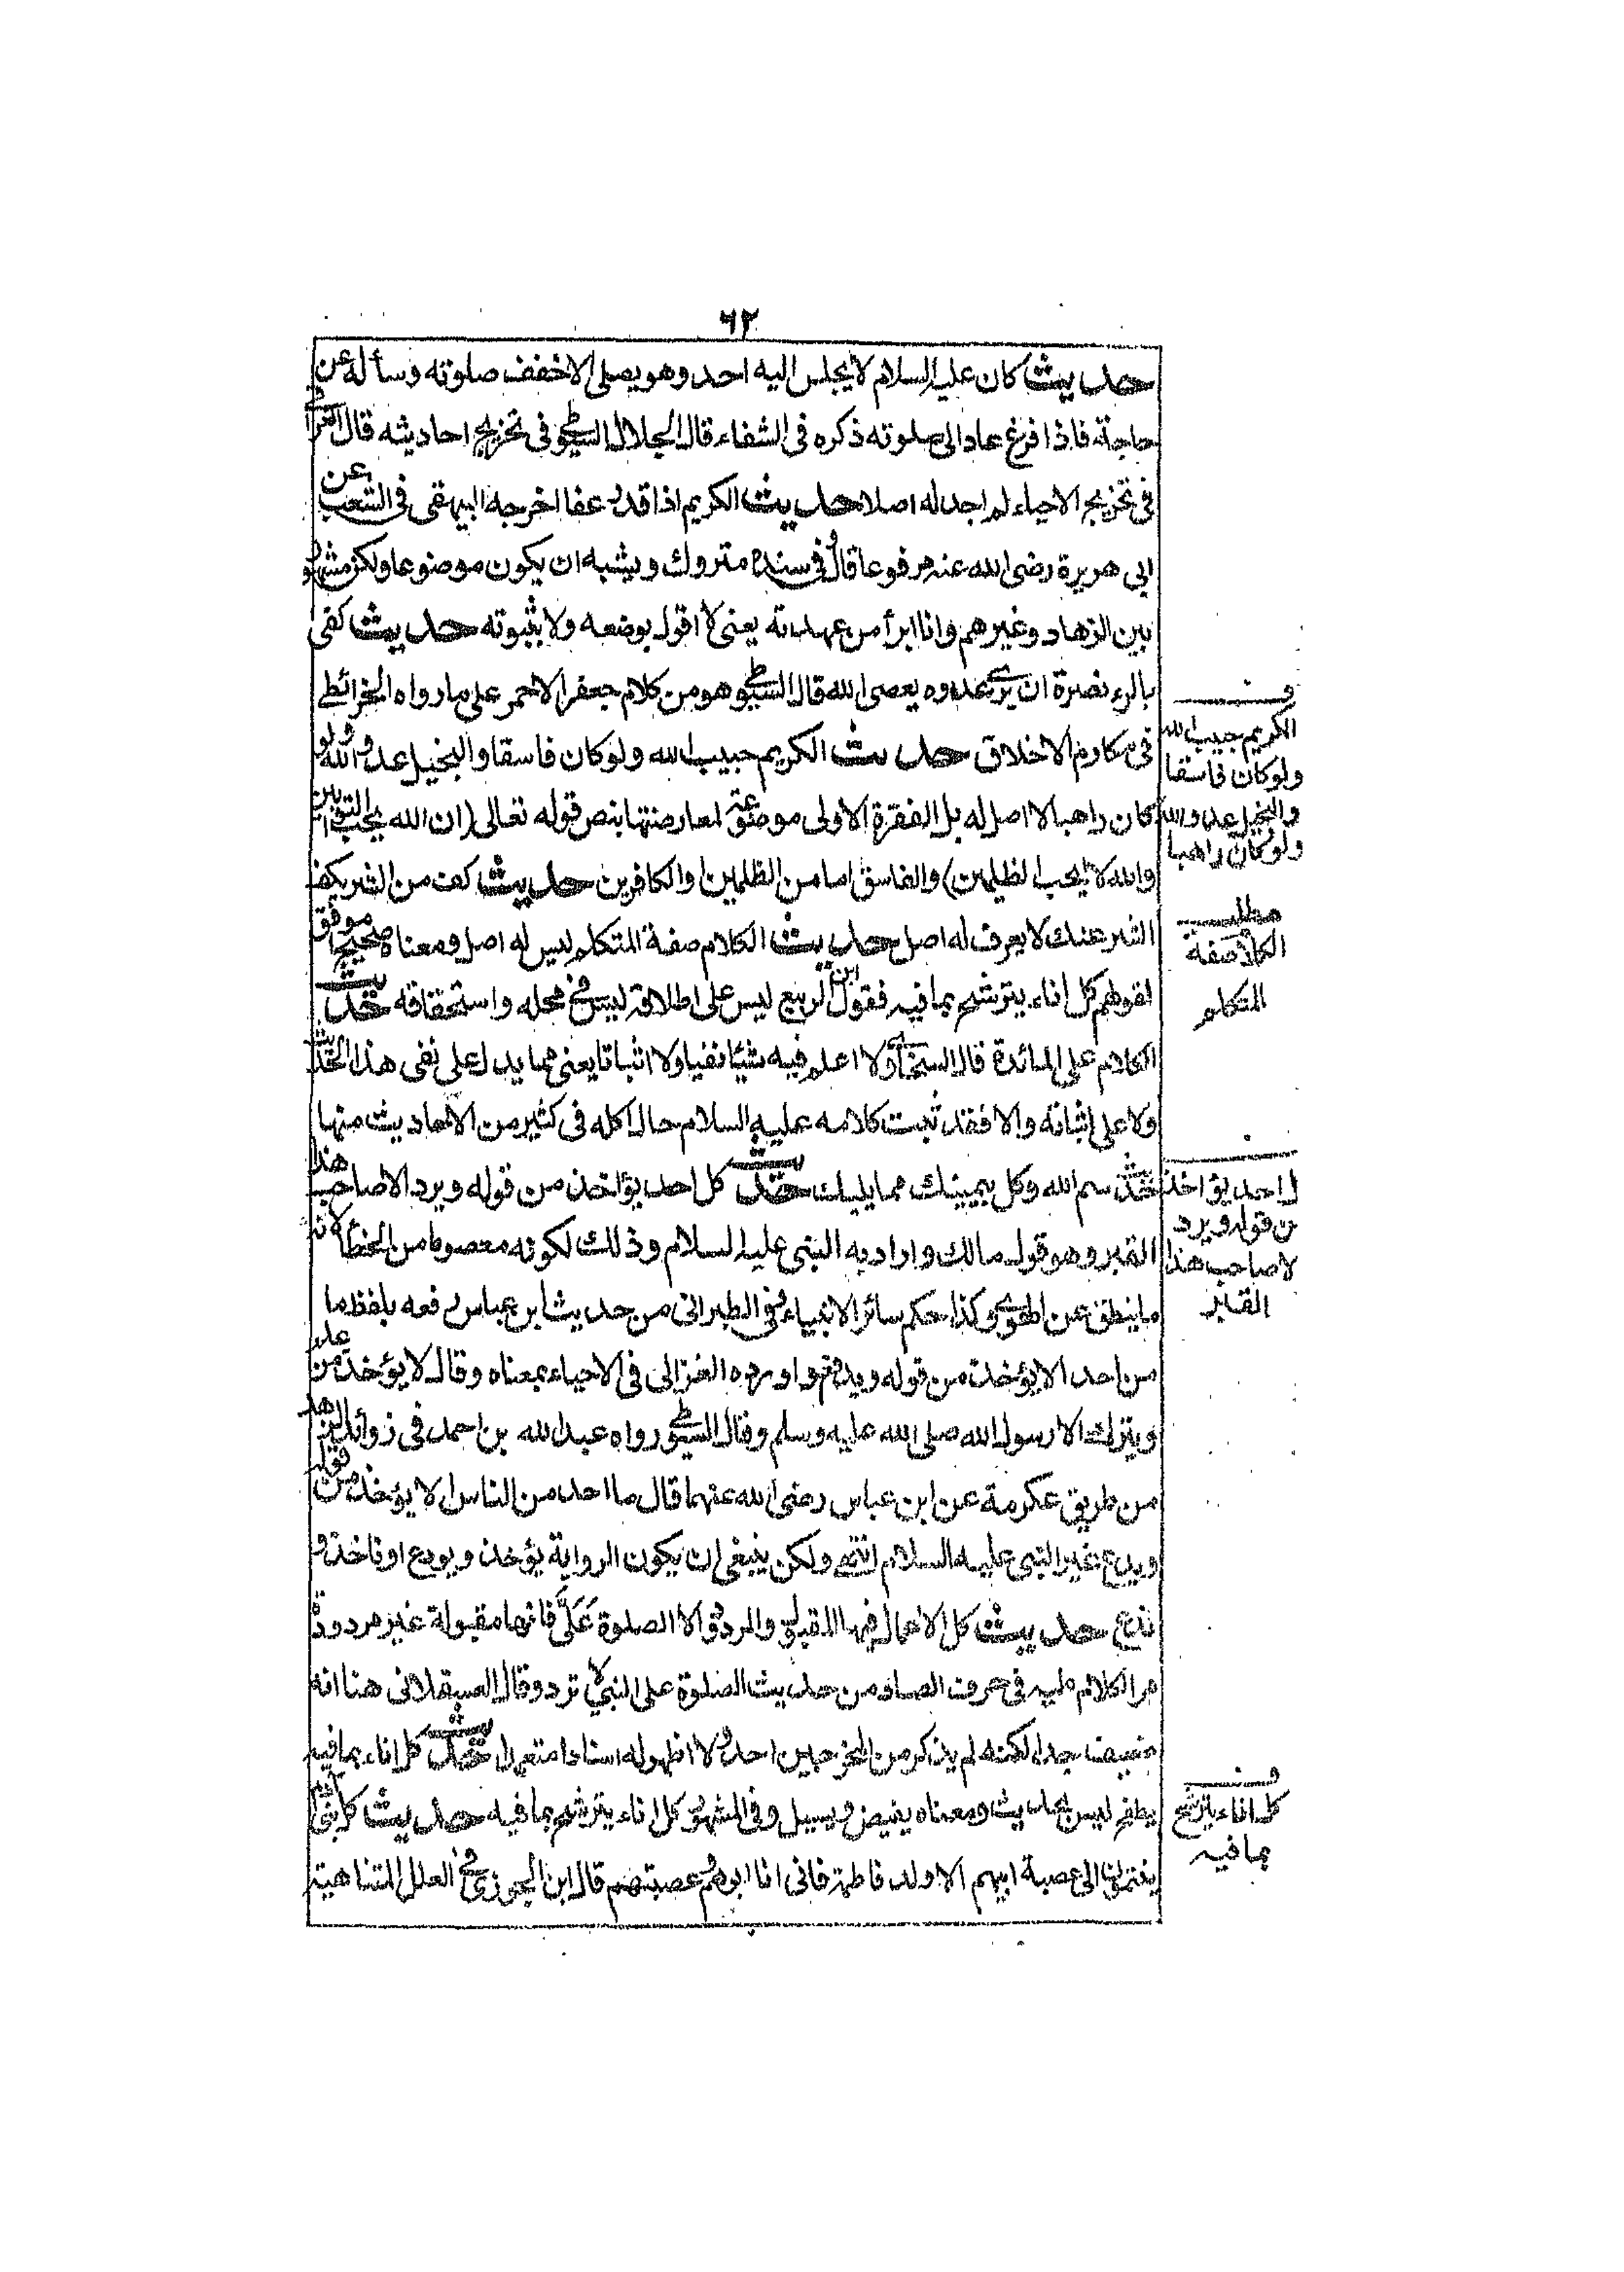 ٦٢
حديث كان عليه السلام لا يجلس اليه احد وهو يصلى الا خفف صلوته وسأله عن
حاجة فاذا فرغ عاد الى صلوته ذكره فى الشفاء قال الجلال السيوطي فى تخريج احاديثه قال العراقي
فى تخريج الاحياء لم اجد له اصلا حديث الكريم اذا قدر عفا اخرجه البيهقى فى الشعب عن
ابى هريرة رضى الله عنه مرفوعا قال وفى سنده متروك ويشبه ان يكون موضوعا ولكن مشهور
بين الزهاد وغيرهم وانا ابرأ من عهدته يعنى لا اقول بوضعه ولا بثبوته حديث كفى
بالمرء نصرة ان يرى عدوه يعصى الله قال السيوطي وهو من كلام جعفر الاحمر على ما رواه الخرائطى
فى مكارم الاخلاق حديث الكريم حبيب الله ولو كان فاسقا والبخيل عدو الله ولو
كان راهبا لا اصل له بل الفقرة الاولى موضوعة لمعارضتها بنص قوله تعالى (ان الله يحب التوابين
والله لا يحب الظلمين) والفاسق اما من الظلمين او الكافرين حديث كف من الشر يكف
الشر عنك لا يعرف له اصل حديث الكلام صفة المتكلم ليس له اصل ومعناه صحيح موفق
لقولهم كل اناء يترشح بما فيه فقول ابن الربيع ليس على اطلاقه ليس فى محله واستحقاقه حديث
الكلام على المائدة قال السخاوى لا اعلم فيه شيئا نفيا ولا اثباتا يعنى مما يدل على نفى هذا الحديث
ولا على اثباته والا فقد ثبت كلامه عليه السلام حال اكله فى كثير من الاحاديث منها
حديث سم الله وكل بيمينك مما يليك حديث كل احد يؤاخذ من قوله ويرد الا صاحب هذا
القبر وهو قول مالك واراد به النبى عليه السلام وذلك لكونه معصوما من الخطأ لانه
ما ينطق عن الهوى وكذا حكم سائر الانبياء وفى الطبرانى من حديث ابن عباس رفعه بلفظ ما
من احد الا يؤخذ من قوله ويدع واورده الغزالى فى الاحياء بمعناه وقال لا يؤخذ من علمه
ويترك الا رسول الله صلى الله عليه وسلم وقال السيوطي رواه عبد الله بن احمد فى زوائد الزهد
من طريق عكرمة عن ابن عباس رضى الله عنهما قال ما احد من الناس الا يؤخذ من قوله
ويدع غير النبى عليه السلام انتهى ولكن ينبغى ان يكون الرواية يؤخذ ويودع او ناخذ و
ندع حديث كل الاعمال فيها المقبول والمردود الا الصلوة عَلَىَّ فانها مقبولة غير مردودة
مر الكلام عليه فى حرف الصاد من حديث الصلوة على النبي لا ترد وقال العسقلانى هنا انه
ضعيف جدا لكنه لم يذكر من المخرجين احد ولا اظهر له اسنادا متعين حديث كل اناء بما فيه
يطفح ليس بحديث ومعناه يفيض ويسيل وفى المشهور كل اناء يترشح بما فيه حديث كل بنى آدم
ينتمون الى عصبة ابيهم الا ولد فاطمة فانى انا ابوهم وعصبتهم قال ابن الجوزى فى العلل المتناهية
الكريم حبيب الله
ولو كان فاسقا
والبخيل عدو الله
ولو كان راهبا
مطلب
الكلام صفة
المتكلم
ل احد يؤاخذ
من قوله ويرد
لا صاحب هذا
القبر
كل اناء يترشح
بما فيه